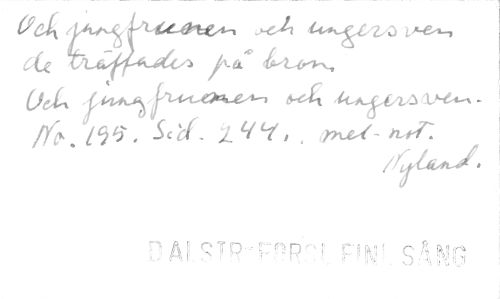 Och jungfrunen och ungersven
de träffades på bron,
Och jungfrunen och ungersven.
No. 195. Sid. 244., mel-not.
Nyland.
DALSTR-FORSL FINL SÅNG